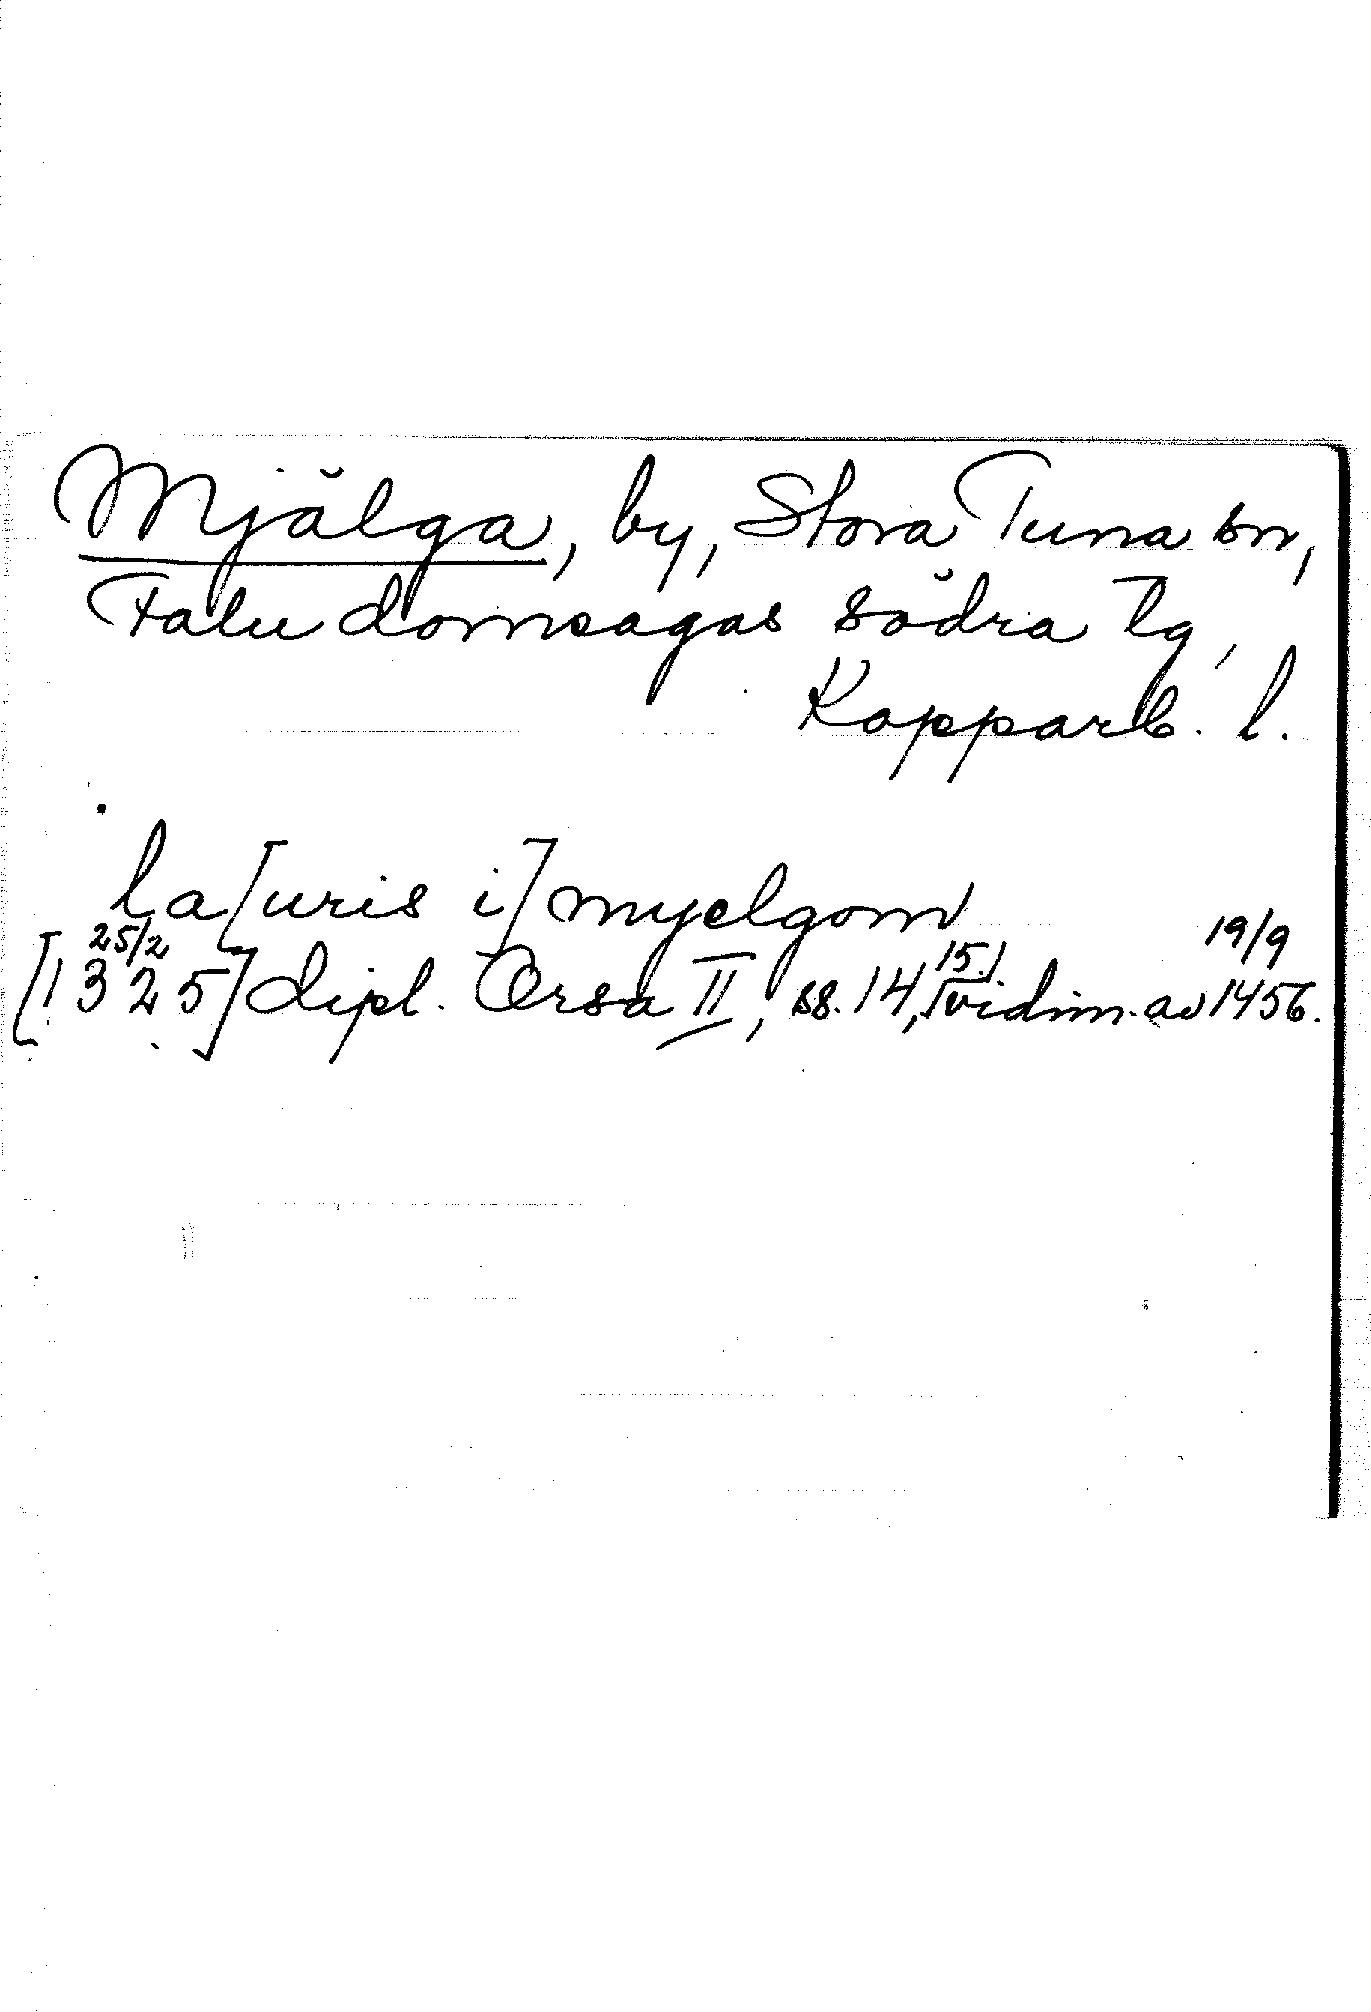 Mjälga, by, Stora Tuna sn,
Falu domsagas södra tg,
Kopparb. l.
la[uris i] myelgom
25/2 19/9
[1325] dipl. Orsa II, ss. 14, 15, vidim. av 1456.